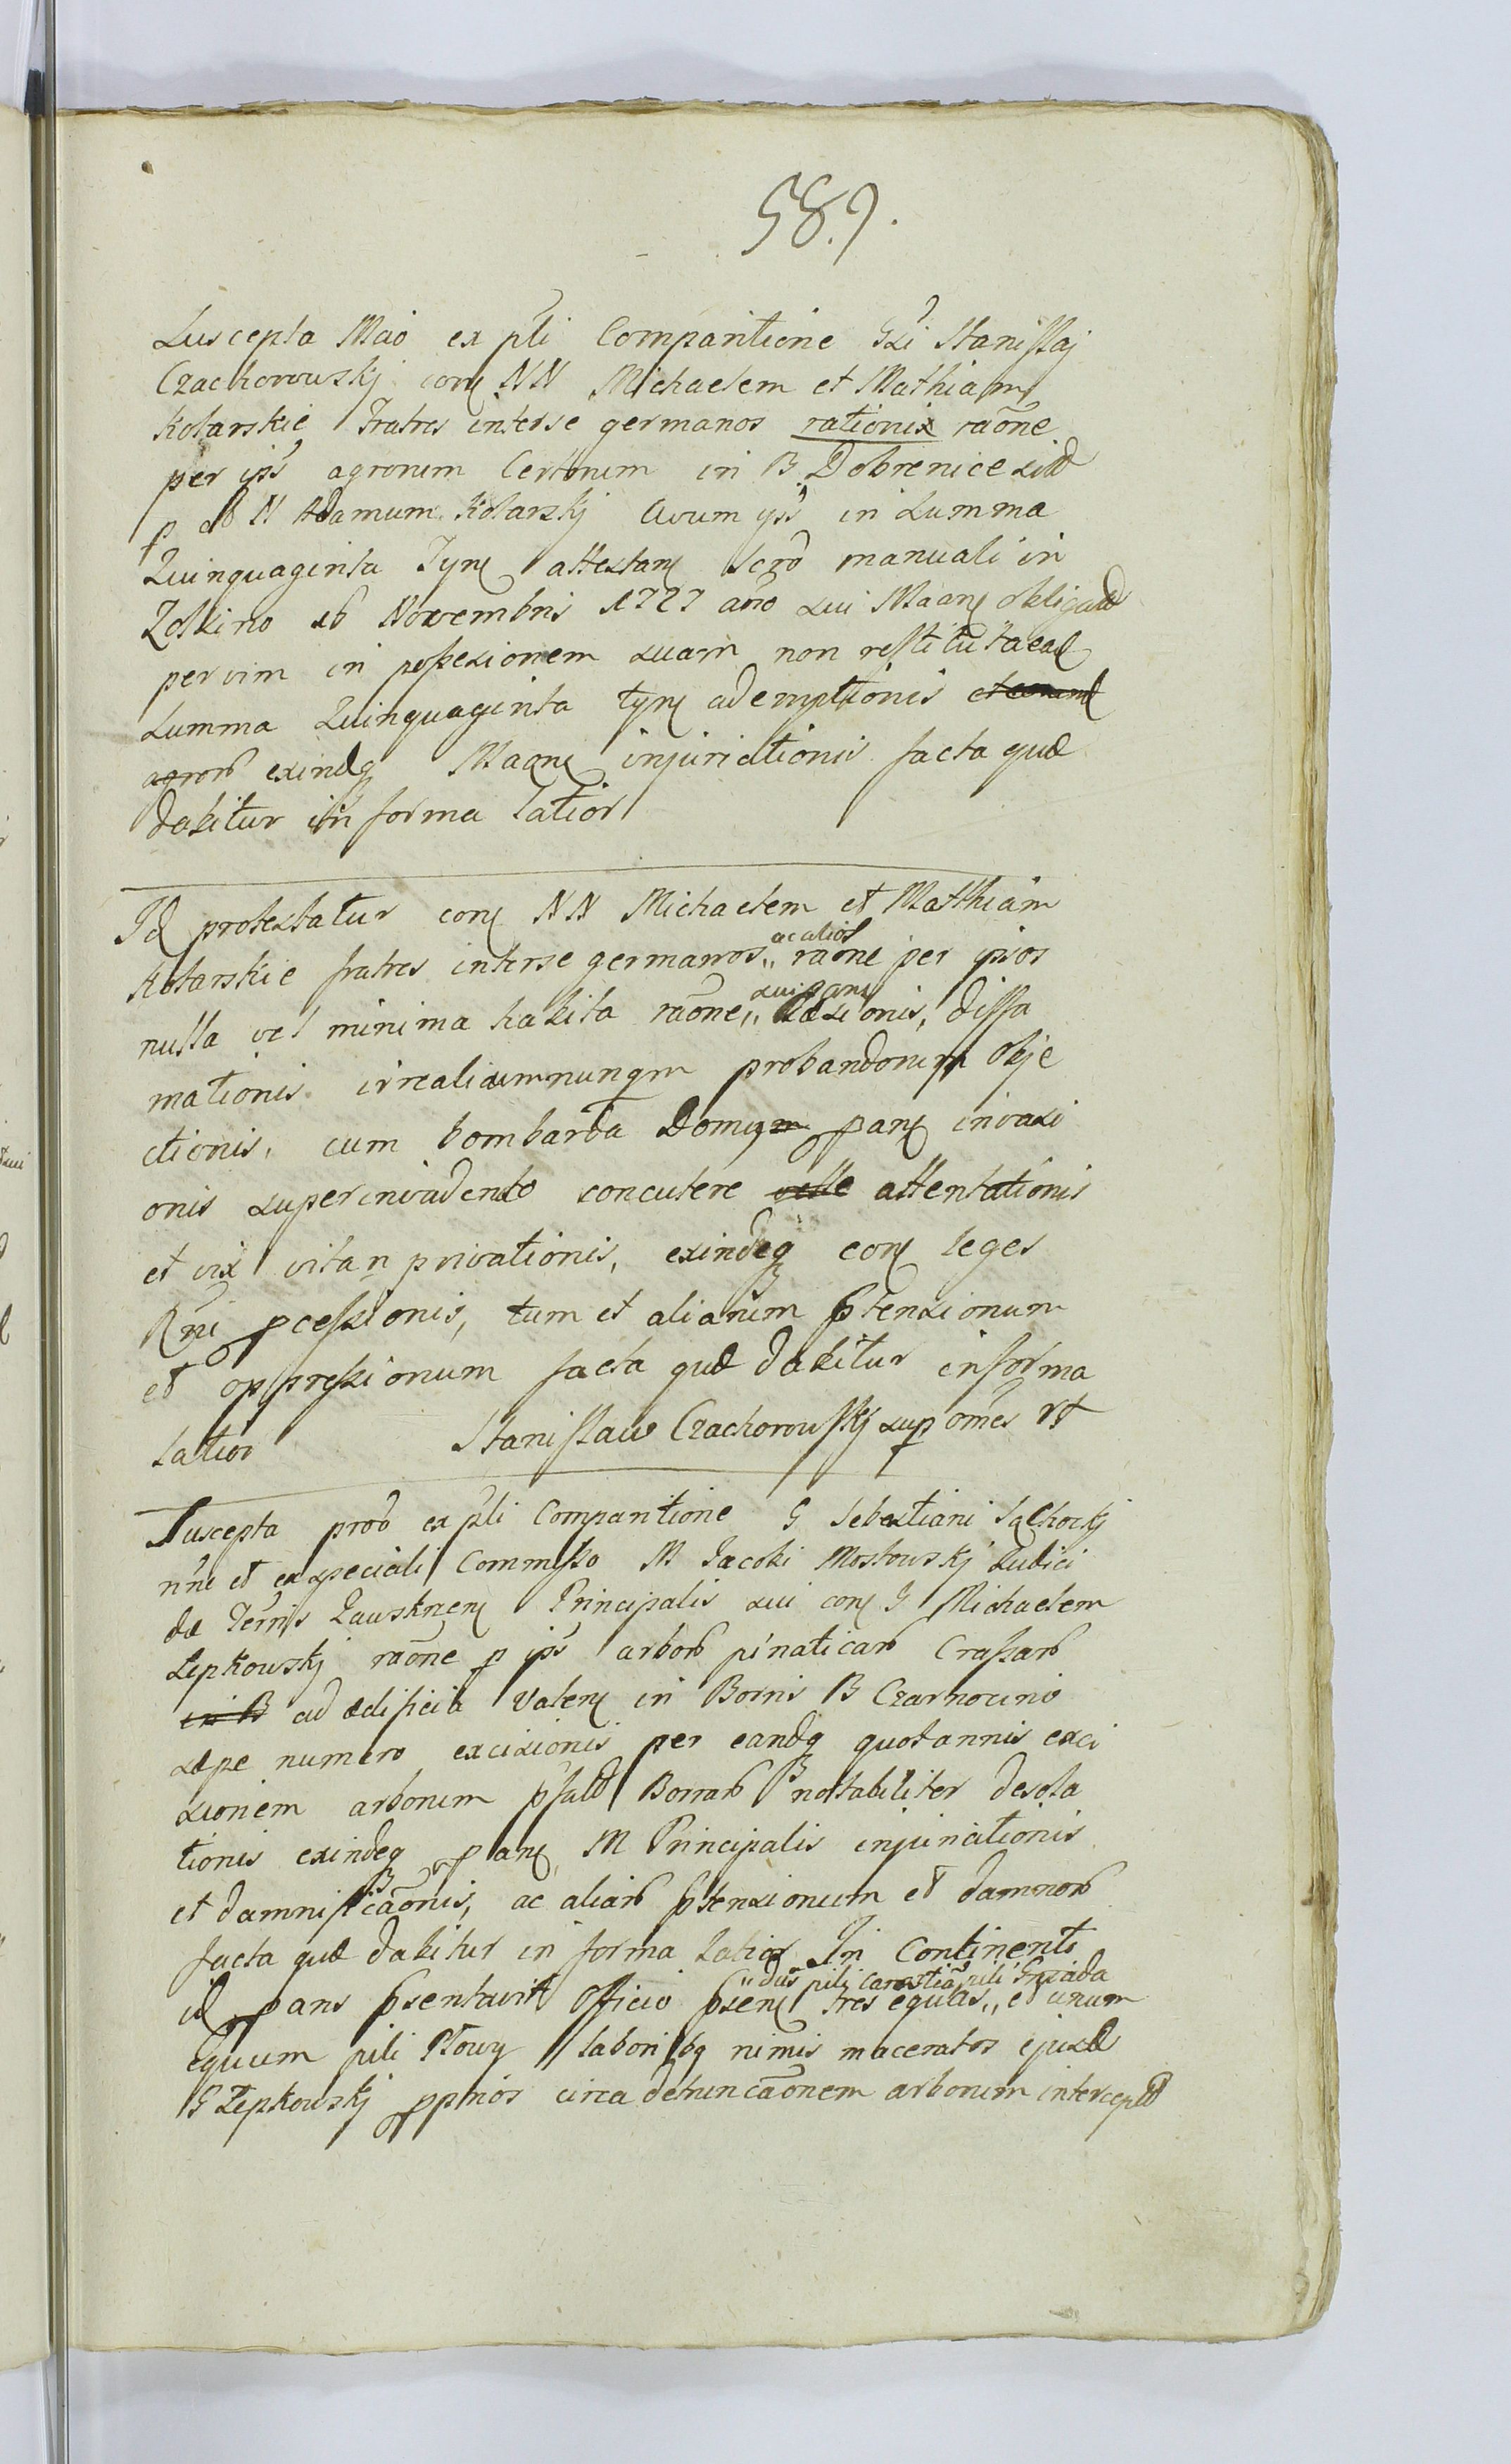 589.
Suscepta Mnão ex pñli Comparitione Gsi Stanislaj
Czachorowskj conꝫ NN Michaelem et Mathiam
Kolarskie Fratres interse germanos rationis raõne
per ips agrorum Certorum in B Dobrenice sitt
p ab N Adamum Kolarskj Avum yps in Summa
Quinquaginta Tynꝫ attestanꝫ Scrõ manuali in
Zolkino 16 Novembris 1727 ano sui Maanꝫ obligatt
per vim in possesionem suam non restituta ead
Summa Quinquaginta tynꝫ ademptionis
exindeqꝫ Maanꝫ injuriationis facta quæ
dabitur in forma latior
Id protestatur conꝫ NN Michaelem et Matthiam
Kolarskie fratres interse germanos,, ac alios raõne per ipsos
nulla vel minima habita raõne,, sui panꝫ læsionis, diffa
mationis irrealium nunqm probandorum Obje
ctionis, cum bombarda Domus panꝫ invasi
onis superinvadendo concutere velle attentationis
et vix vitæ ñ privationis, exindeqꝫ conꝫ leges
Rni pcessionis, tum et aliarum ptensionum
et oppressionum facta quæ dabitur informa
latior Stanisław Czachorowskj sup omes ut
Suscepta prõo ex pñli Comparitione G Sebastiani
nñe et ex speciali Commisso M Jacobi Mostowskj Judici
da Terris Zawskrzenꝫ Principalis sui conꝫ G Michaelem
Lepkowskj raõne p ips arborꝫ pinaticarꝫ Crassarꝫ
in B ad ædificia Valenꝫ in Borris B Czarnocino
sæpe numero excisionis per eandqꝫ quotannis exci
sionem arborum psatt Borrarꝫ nottabiliter desola
tionis exindeqꝫ panꝫ M Principalis injuriationis
et damnificaõnis, ac aliarꝫ ptensionum et damnorꝫ
facta quæ dabitur in forma latior In Continenti
id pans psentavit Officio psenꝫ tres equas,, duas pili pili Gniada et unum
equum pili Plowy laboribꝫ nimis maceratos ejusd
G Lepkowskj pprios circa detruncaõnem arborum intercept